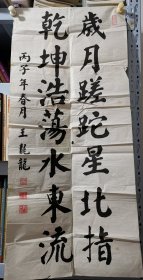 歲月蹉跎星北指
乾坤浩蕩水東流
丙子年春月 王乾龍